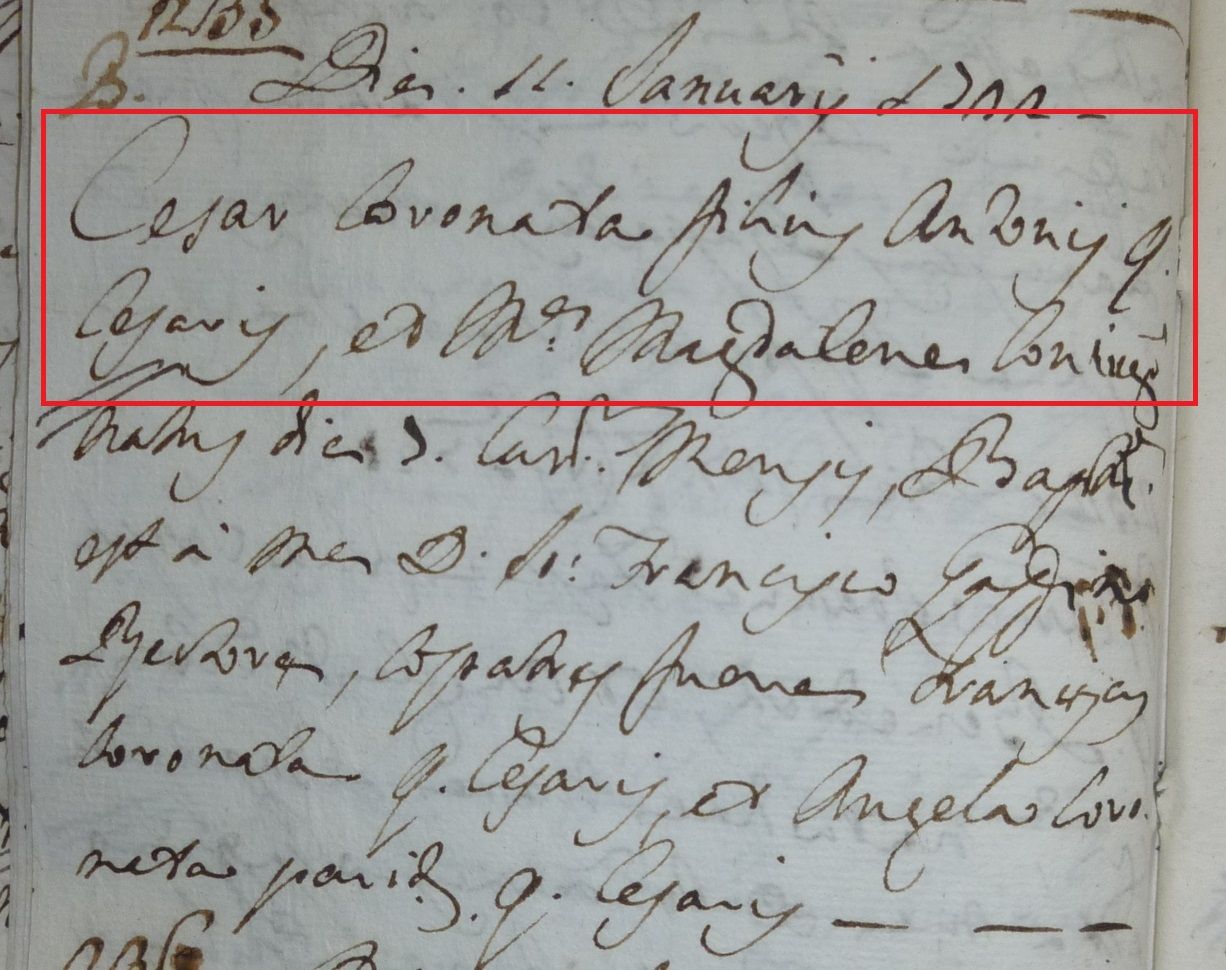 B. Die. 11. Januarij 17
Cesar Coronata filius Antonij q.
Cesaris, et M.ae Magdalene Coniug
Natus die 3. Curt. Mensis, Bapt.
est à me D. Jo: Francisco
Rectore, Compatres fuere Franciscus
Coronata q. Cesaris, et Angela Coro-
nata parit. q. Cesaris